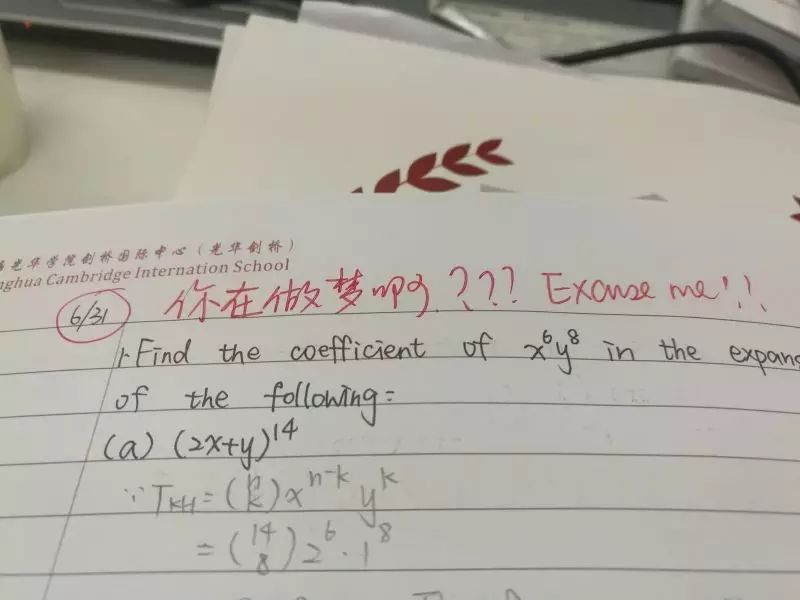 光华学院剑桥国际中心（光华剑桥）
Cambridge Internation School
6/31 你在做梦吗??? Excuse me!!
1. Find the coefficient of x⁶y⁸ in the
of the following:
(a) (2x+y)¹⁴
∵ Tₖ₊₁ = (n k) xⁿ⁻ᵏ yᵏ
= (14 8) 2⁶ · 1⁸